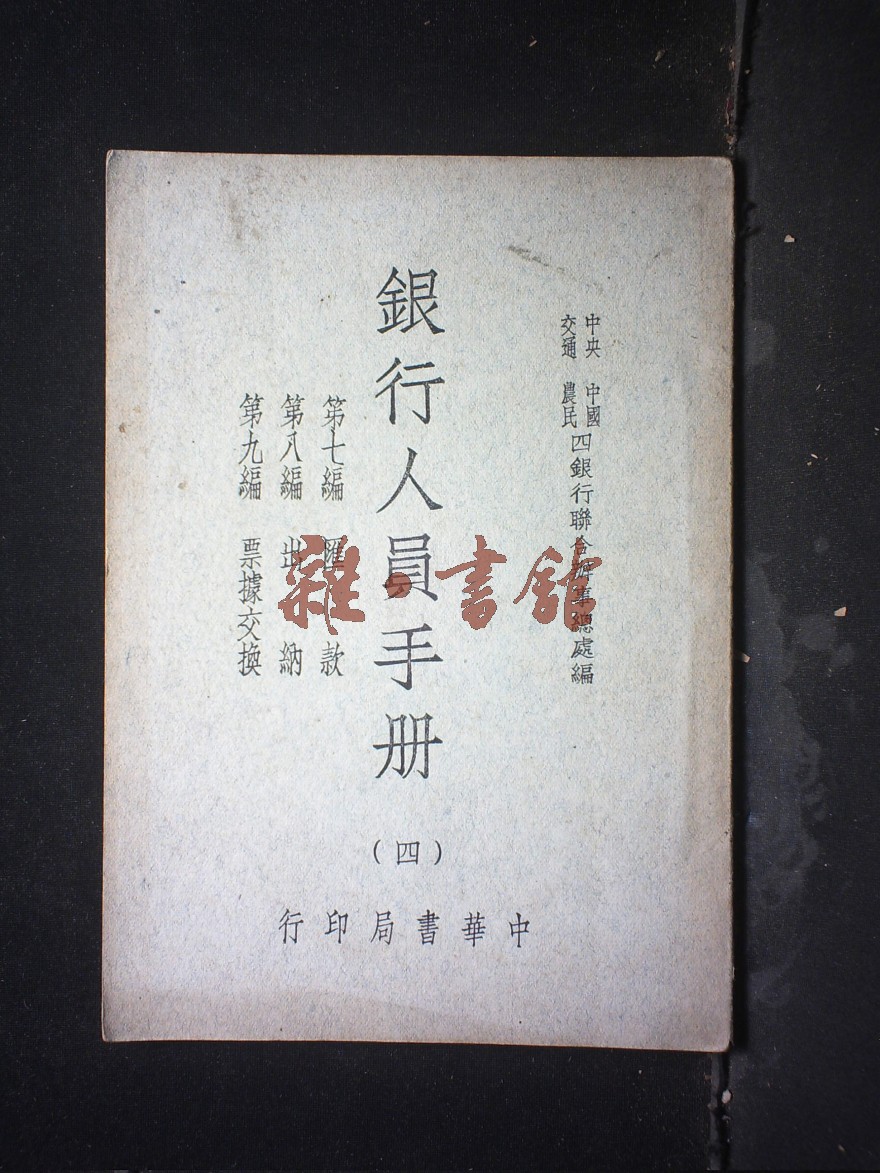 中央 中國
交通 農民
四銀行聯合辦事總處編
銀行人員手册
（四）
第七編 匯款
第八編 出納
第九編 票據交換
中華書局印行
雜·書館